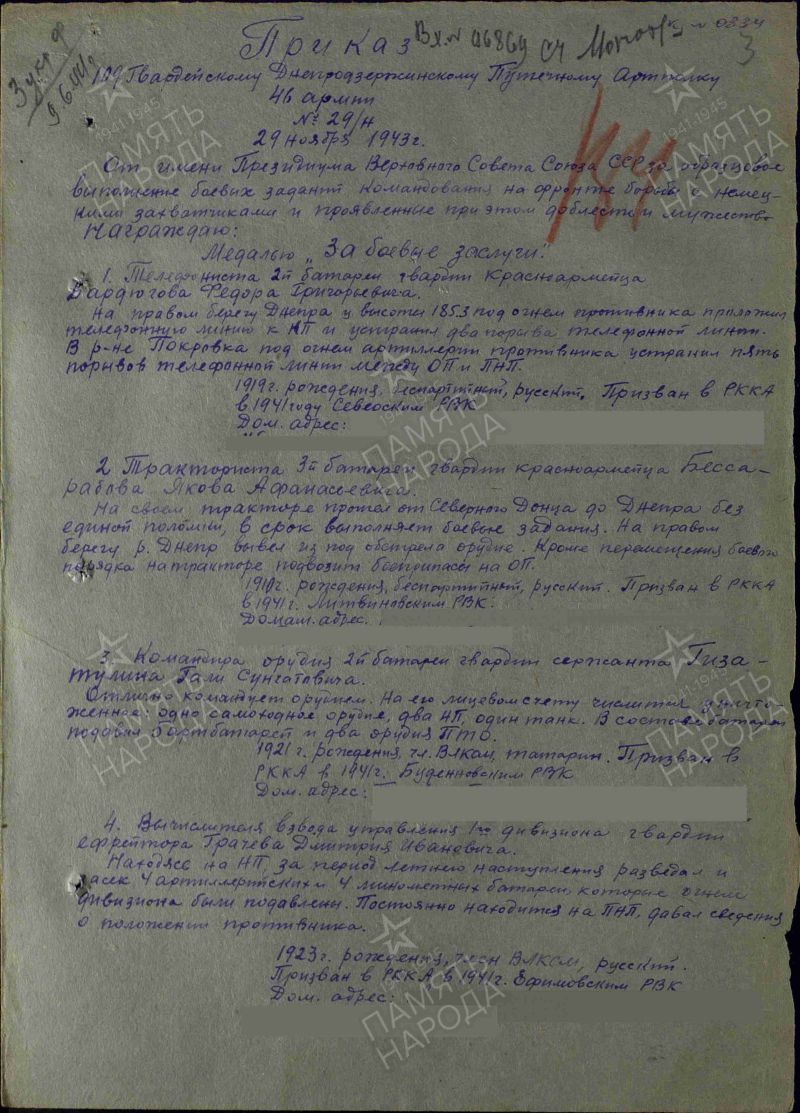 Приказ Вх.N 06869
3
109 Гвардейскому Днепродзержинскому Пушечному Артполку
46 армии
№ 29/н
29 ноября 1943 г.
От имени Президиума Верховного Совета Союза ССР за образцовое
выполнение боевых заданий командования на фронте борьбы с немец-
кими захватчиками и проявленные при этом доблесть и мужество
Награждаю:
Медалью „За боевые заслуги"
1. Телефониста 2й батареи гвардии красноармейца
Бардюгова Федора Григорьевича.
На правом берегу Днепра у высоты 185.3 под огнем противника проложил
телефонную линию к НП и устранил два порыва телефонной линии.
В р-не Покровка под огнем артиллерии противника устранил пять
порывов телефонной линии между ОП и ПНП.
1919 г. рождения, беспартийный, русский. Призван в РККА
в 1941 году РВК
Дом. адрес:
2 Тракториста 3й батареи гвардии красноармейца Бесса-
рабова Якова Афанасьевича.
На своем тракторе прошел от Северного Донца до Днепра без
единой поломки, в срок выполняет боевые задания. На правом
берегу р. Днепр вывел из под обстрела орудие. Кроме перемещения боевого
порядка на тракторе подвозит боеприпасы на ОП.
1910 г. рождения, беспартийный, русский. Призван в РККА
в 1941 г. Литвиновским РВК.
Домаш. адрес.
3. Командира орудия 2й батареи гвардии сержанта Гиза-
тулина Гали Сунгатовича.
Отлично командует орудием. На его лицевом счету числится уничто-
женное: одно самоходное орудие, два НП, один танк. В составе батареи
подавил 5 артбатарей и два орудия ПТО.
1921 г. рождения, чл. ВЛКСМ, татарин. Призван в
РККА в 1941 г. Буденновским РВК
Дом. адрес:
4. Вычислителя взвода управления 1го дивизиона гвардии
ефрейтора Грачева Дмитрия Ивановича.
Находясь на НП, за период летнего наступления разведал и
засек 4 артиллерийских и 4 минометных батареи, которые огнем
дивизиона были подавлены. Постоянно находится на ПНП, давал сведения
о положении противника.
1923 г. рождения, член ВЛКСМ, русский.
Призван в РККА в 1941 г. Ефимовским РВК
Дом. адрес:
ПАМЯТЬ НАРОДА
1941-1945